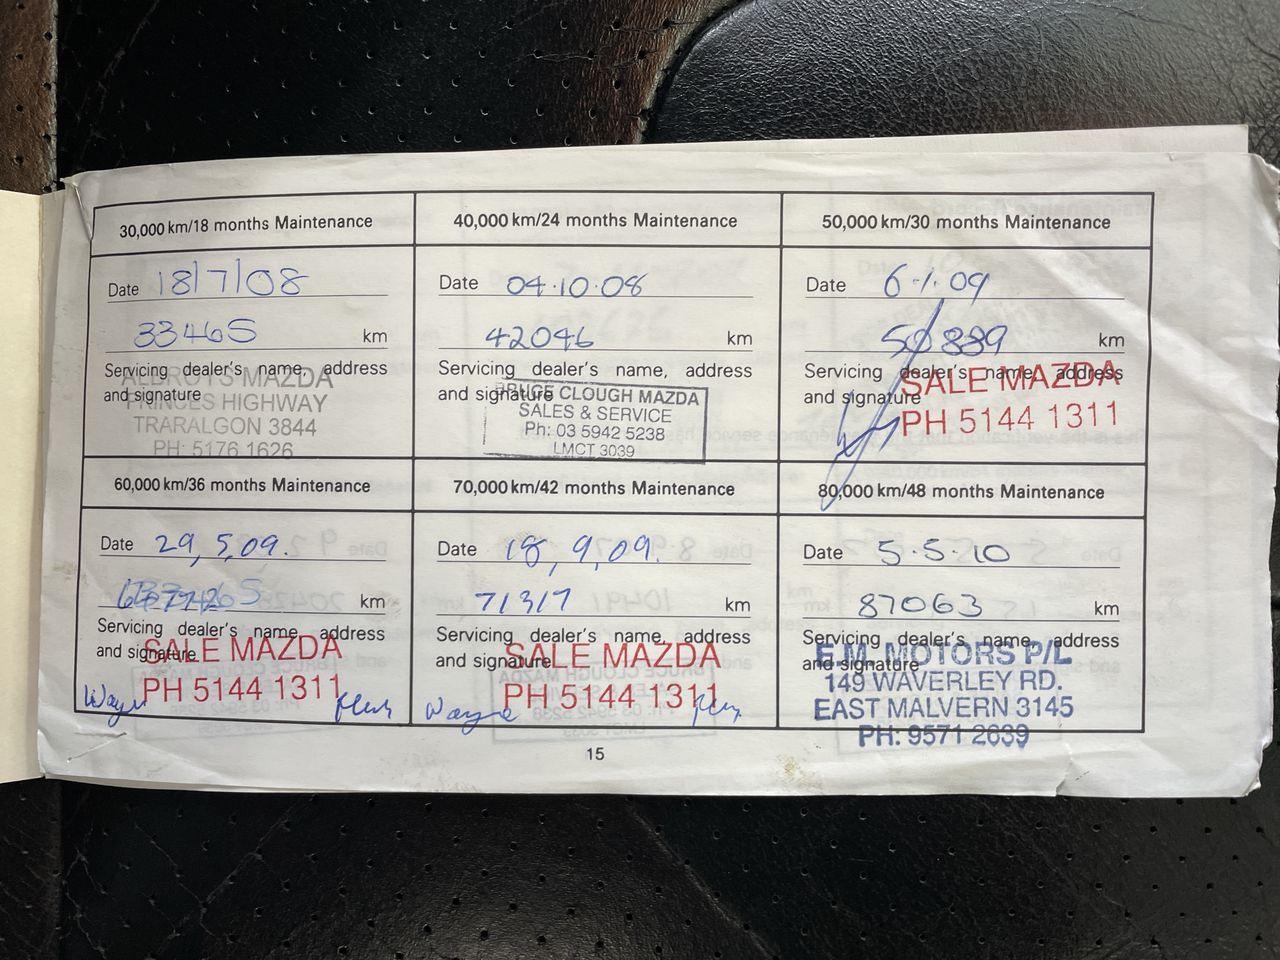 30,000 km/18 months Maintenance
Date 18/7/08
33465 km
Servicing dealer's name, address
and signature
MAZDA
PRINCES HIGHWAY
TRARALGON 3844
PH: 5176 1626
40,000 km/24 months Maintenance
Date 04.10.08
42046 km
Servicing dealer's name, address
and signature
BRUCE CLOUGH MAZDA
SALES & SERVICE
Ph: 03 5942 5238
LMCT 3039
50,000 km/30 months Maintenance
Date 6.1.09
50889 km
Servicing dealer's name, address
and signature
SALE MAZDA
PH 5144 1311
60,000 km/36 months Maintenance
Date 29,5,09.
km
Servicing dealer's name, address
and signature
SALE MAZDA
PH 5144 1311
Wayne
70,000 km/42 months Maintenance
Date 18,9,09.
71317 km
Servicing dealer's name, address
and signature
SALE MAZDA
PH 5144 1311
Wayne
80,000 km/48 months Maintenance
Date 5.5.10
87063 km
Servicing dealer's name, address
and signature
E.M. MOTORS P/L
149 WAVERLEY RD.
EAST MALVERN 3145
PH: 9571 2639
15